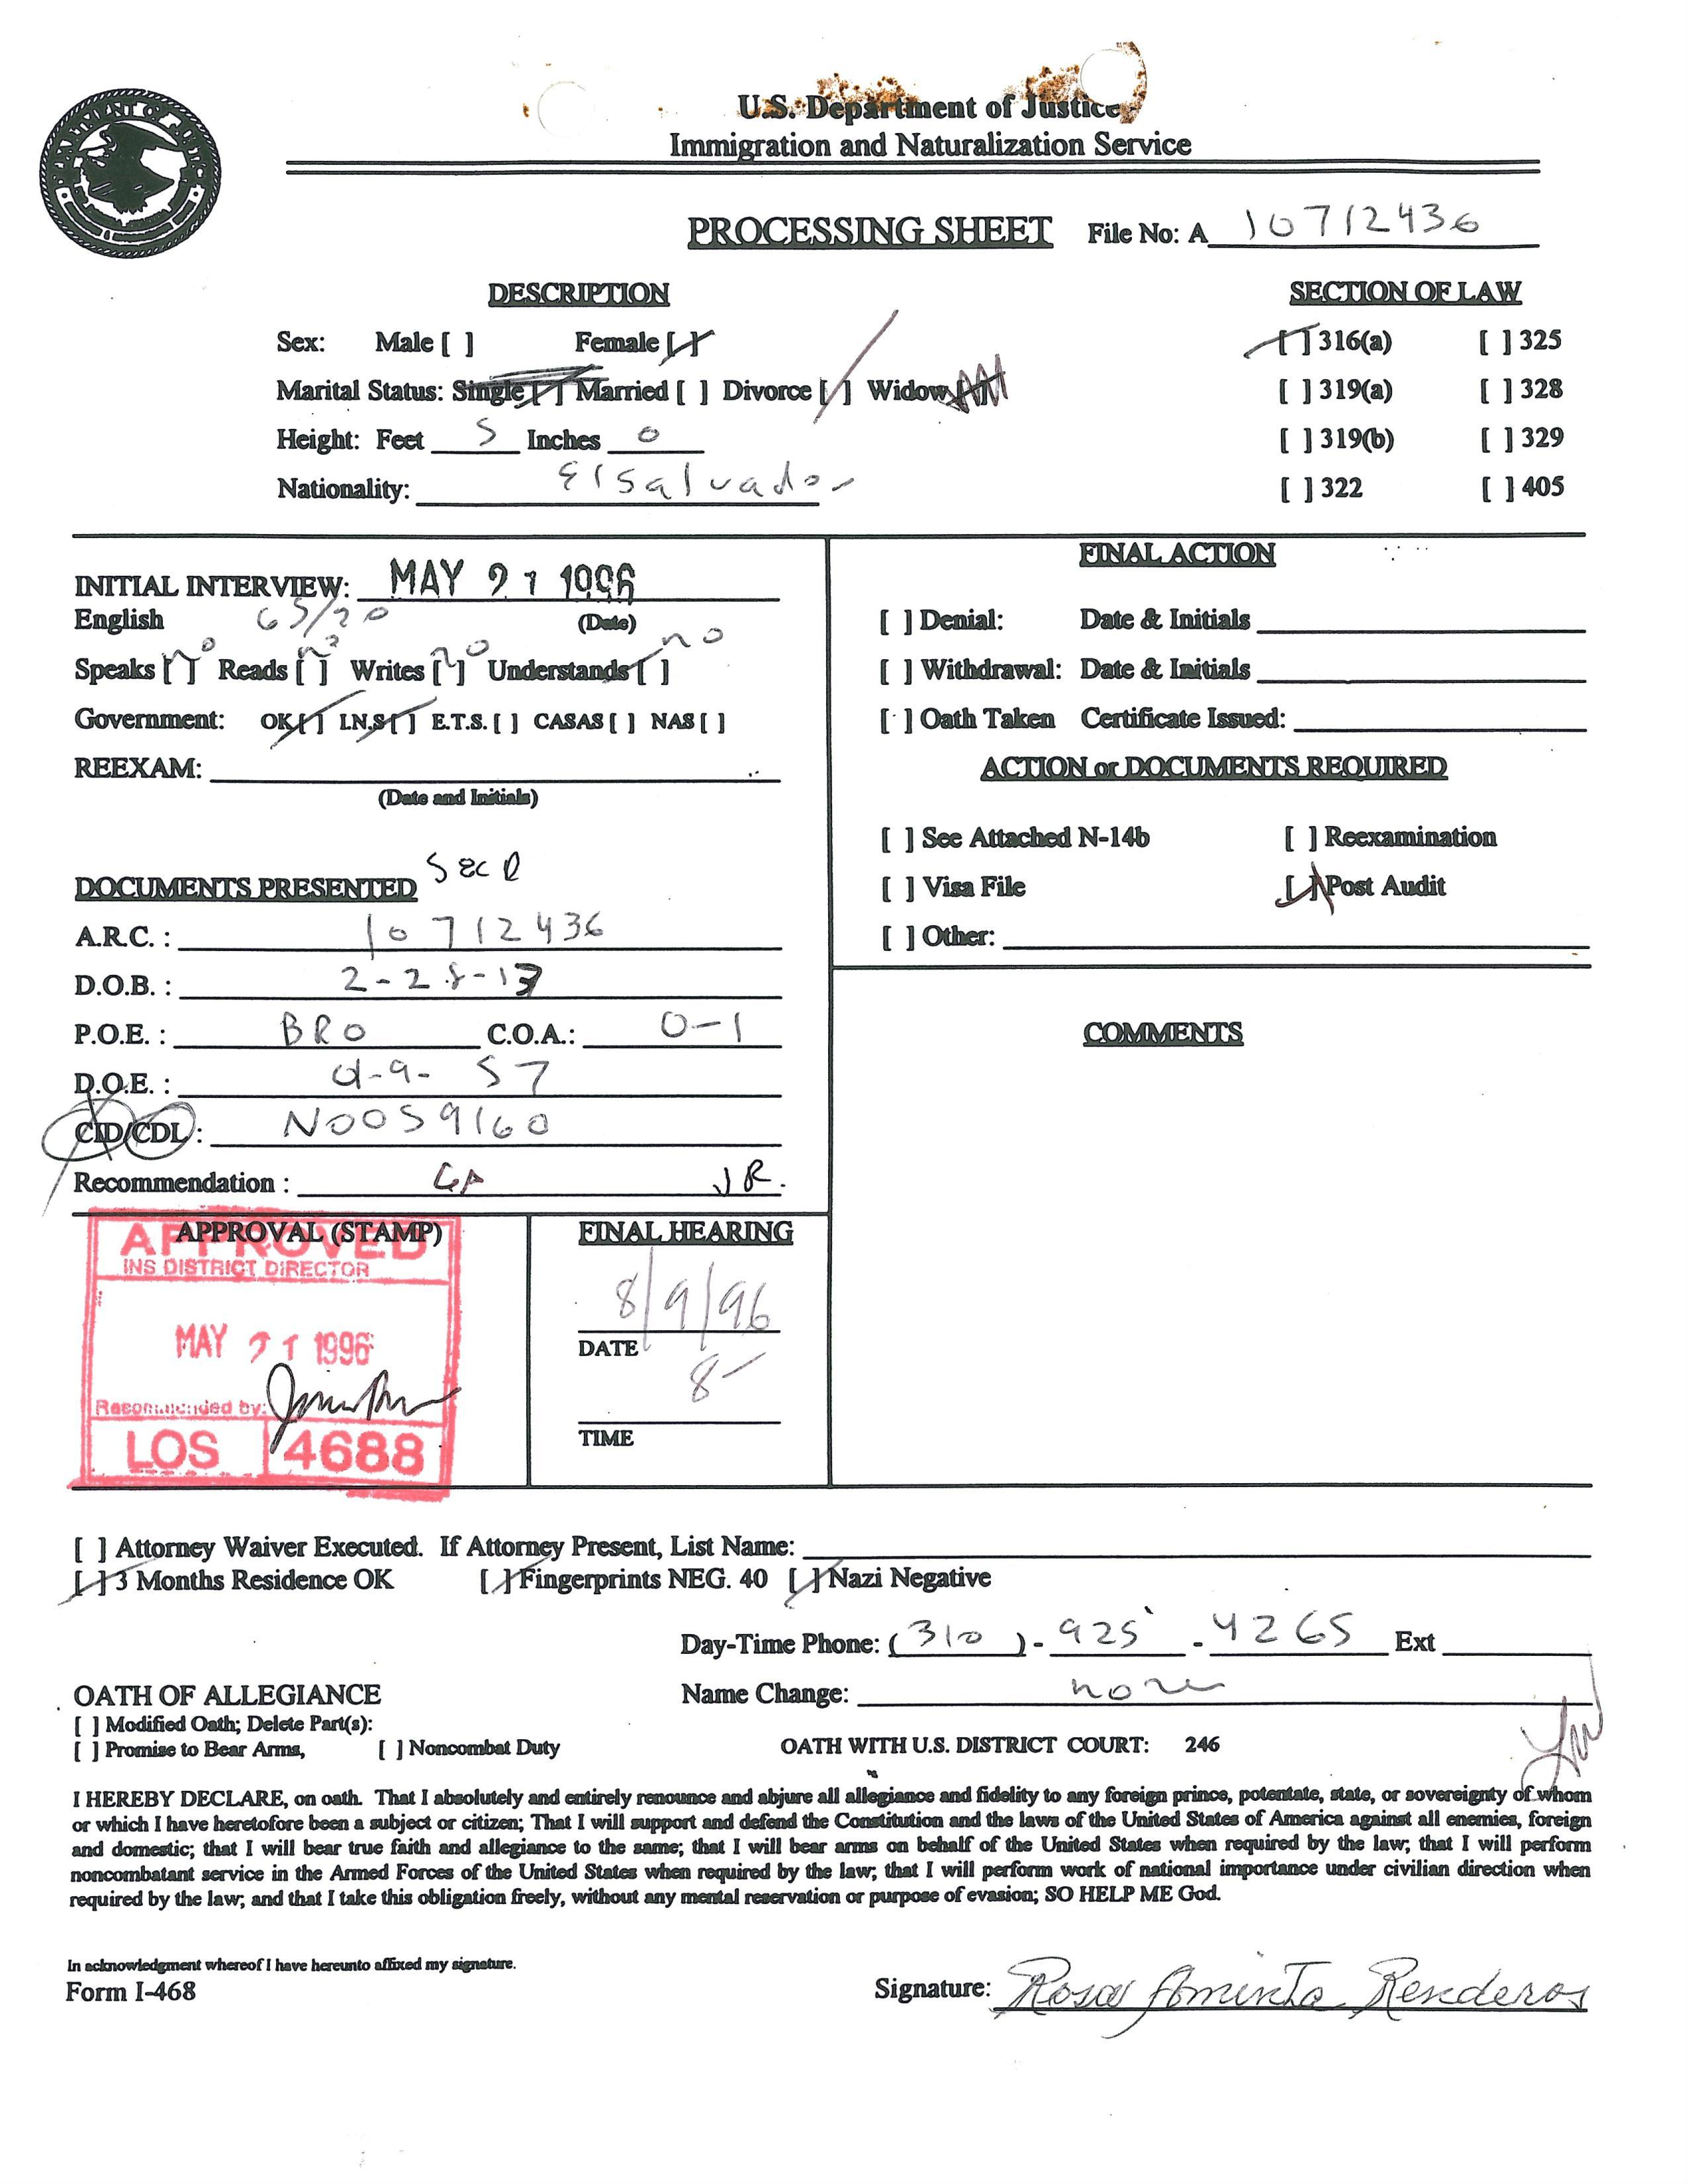 U.S. Department of Justice
Immigration and Naturalization Service
PROCESSING SHEET File No: A 10712436
DESCRIPTION SECTION OF LAW
Sex: Male [ ] Female [ ] [ ] 316(a) [ ] 325
Marital Status: Single [ ] Married [ ] Divorce [ ] Widow [ ] [ ] 319(a) [ ] 328
Height: Feet 5 Inches 0 [ ] 319(b) [ ] 329
Nationality: El Salvador [ ] 322 [ ] 405
INITIAL INTERVIEW: MAY 21 1996
English 65/20 (Date)
Speaks [ ] no Reads [ ] no Writes [ ] no Understands [ ] no
Government: OK [ ] I.N.S [ ] E.T.S. [ ] CASAS [ ] NAS [ ]
REEXAM:
(Date and Initials)
DOCUMENTS PRESENTED
A.R.C. : 10712436
D.O.B. : 2-28-13
P.O.E. : BRO C.O.A.: 0-1
D.O.E. : 9-57
CID/CDL : N0059160
Recommendation : JR.
FINAL ACTION
[ ] Denial: Date & Initials
[ ] Withdrawal: Date & Initials
[ ] Oath Taken Certificate Issued:
ACTION or DOCUMENTS REQUIRED
[ ] See Attached N-14b [ ] Reexamination
[ ] Visa File [ ] Post Audit
[ ] Other:
COMMENTS
APPROVAL (STAMP)
APPROVED
INS DISTRICT DIRECTOR
MAY 21 1996
Recommended by:
LOS 4688
FINAL HEARING
8/9/96
DATE
8-
TIME
[ ] Attorney Waiver Executed. If Attorney Present, List Name:
[ ] 3 Months Residence OK [ ] Fingerprints NEG. 40 [ ] Nazi Negative
Day-Time Phone: (310) - 925 - 4265 Ext
OATH OF ALLEGIANCE Name Change: none
[ ] Modified Oath; Delete Part(s):
[ ] Promise to Bear Arms, [ ] Noncombat Duty OATH WITH U.S. DISTRICT COURT: 246
I HEREBY DECLARE, on oath. That I absolutely and entirely renounce and abjure all allegiance and fidelity to any foreign prince, potentate, state, or sovereignty of whom
or which I have heretofore been a subject or citizen; That I will support and defend the Constitution and the laws of the United States of America against all enemies, foreign
and domestic; that I will bear true faith and allegiance to the same; that I will bear arms on behalf of the United States when required by the law; that I will perform
noncombatant service in the Armed Forces of the United States when required by the law; that I will perform work of national importance under civilian direction when
required by the law; and that I take this obligation freely, without any mental reservation or purpose of evasion; SO HELP ME God.
In acknowledgment whereof I have hereunto affixed my signature.
Form I-468 Signature: Rosa Aminta Renderos